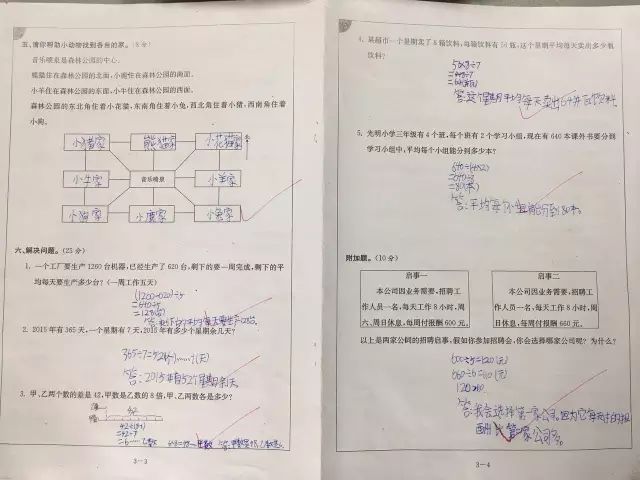 五、请你帮助小动物找到各自的家。(8分)
音乐喷泉是森林公园的中心。
熊猫住在森林公园的北面,小鹿住在森林公园的南面。
小羊住在森林公园的东面,小牛住在森林公园的西面。
森林公园的东北角住着小花猫,东南角住着小兔,西北角住着小猪,西南角住着
小狗。
小猪家 熊猫家 小花猫家
小牛家 音乐喷泉 小羊家
小狗家 小鹿家 小兔家
六、解决问题。(25分)
1. 一个工厂要生产1260台机器,已经生产了620台,剩下的要一周完成,剩下的平
均每天要生产多少台?(一周工作五天)
(1260-620)÷5
=640÷5
=128(台)
2. 2015年有365天,一个星期有7天,2015年有多少个星期余几天?
365÷7=52(个)……1(天)
答:2015年有52个星期余1天。
3. 甲、乙两个数的差是42,甲数是乙数的8倍,甲、乙两数各是多少?
42
42÷(8-1)
=42÷7
=6
3-3
4. 某超市一个星期卖了8箱饮料,每箱饮料有56瓶,这个星期平均每天卖出多少瓶
饮料?
56×8÷7
=448÷7
=64(瓶)
答:这个星期平均每天卖出64瓶饮料。
5. 光明小学三年级有4个班,每个班有2个学习小组,现在有640本课外书要分到
学习小组中,平均每个小组能分到多少本?
640÷(4×2)
=640÷8
=80(本)
答:平均每个小组能分到80本。
附加题。(10分)
启事一
本公司因业务需要,招聘工
作人员一名,每天工作8小时,周
六、周日休息,每周付报酬600元。
启事二
本公司因业务需要,招聘工
作人员一名,每天工作8小时,周
日休息,每周付报酬660元。
以上是两家公司的招聘启事,假如你参加招聘会,你会选择哪家公司呢?为什么?
600÷5=120(元)
660÷6=110(元)
120>110
答:我会选择第一家公司。因为它每天付的报
酬比第二家公司多。
3-4